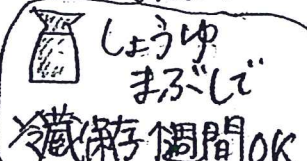 しょうゆ
まぶして
冷蔵保存1週間OK